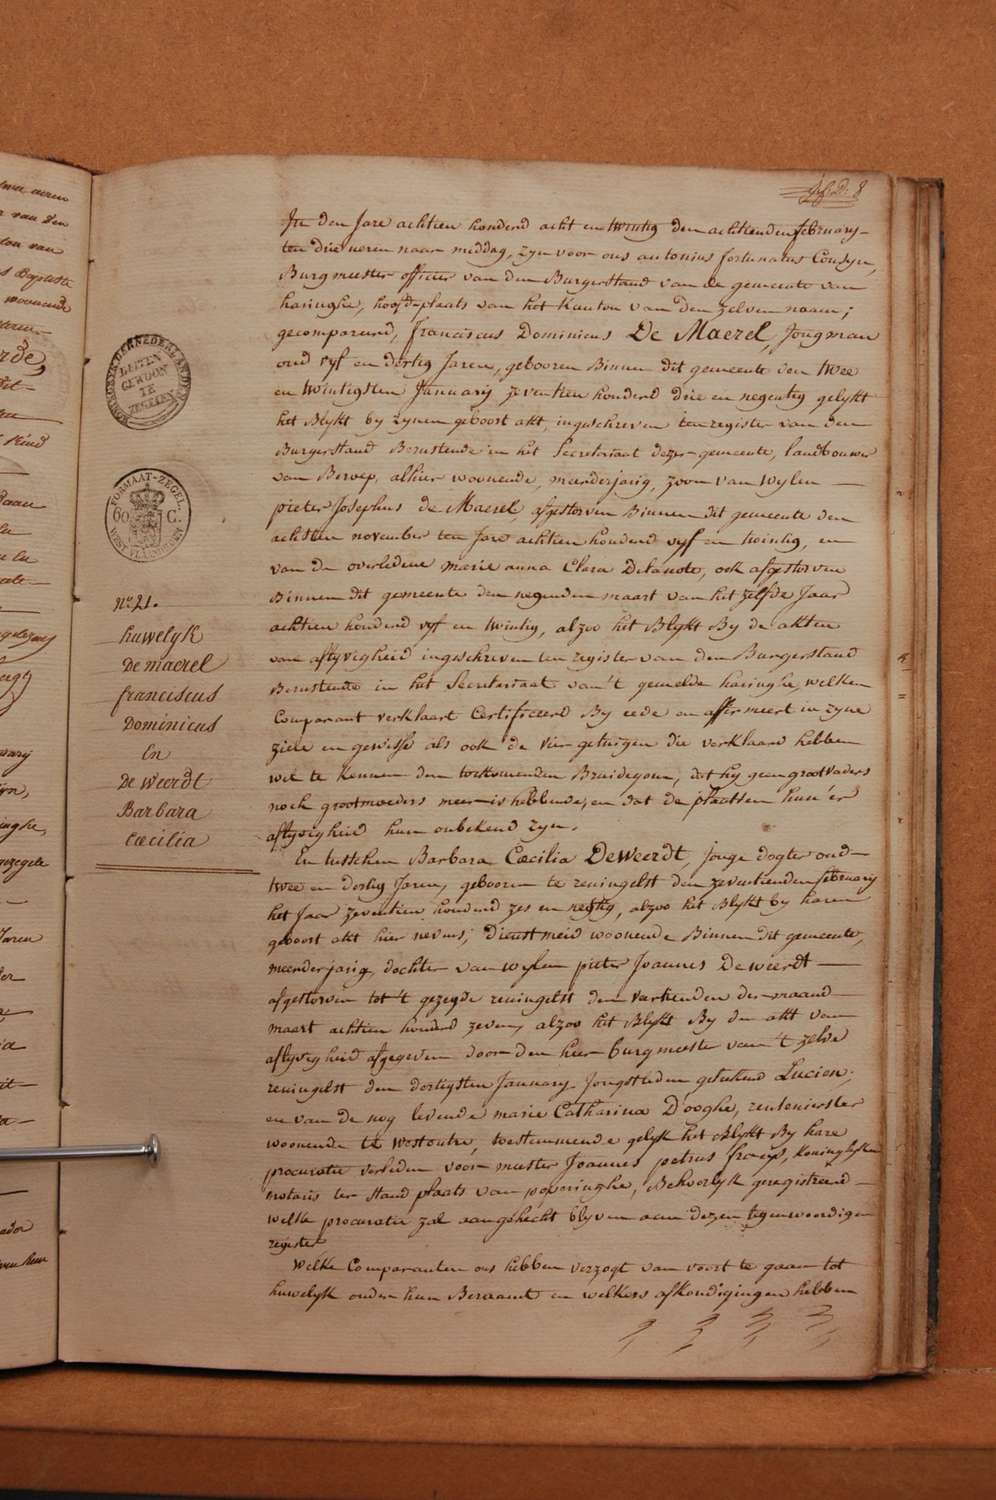 8
In den Jare achtien honderd acht en twintig den achtienden february
ten drie ueren naar middag, zyn voor ons antonius fortunatus Cousyn,
Burgmeester officier van den Burgerstand van de gemeente van
haringhe, hoofd-plaats van het Kanton van den zelven naam;
gecompareerd, franciscus Dominicus De Maerel, Jongman
oud vyf en dertig Jaren, gebooren Binnen dit gemeente den twee
en twintigsten January zeventien honderd drie en negentig gelykt
het Blykt by zynen geboort akt, ingeschreven ten register van den
Burgerstand Berustende in het Secretariaat dezer gemeente, landbouwer
van Beroep, alhier woonende, meerderjarig, zoon van wylen
pieter Josephus de Maerel, afgestorven Binnen dit gemeente den
achtsten november ten Jare achtien honderd vyf en twintig, en
van de overledene marie anna Clara Delanote, ook afgestorven
Binnen dit gemeente den negenden maart van het zelfde Jaar
achtien honderd vyf en twintig, alzoo het Blykt By de akten
van aflyvigheid ingeschreven ten register van den Burgerstand
Berustende in het Secretariaat van 't gemelde haringhe, welken
Comparant verklaart Certificeerd By eede en affirmeert in zyne
ziele en gewisse als ook de vier getuigen die verklaard hebben
wel te kennen den toekomenden Bruidegom, dat hy geen grootvaders
noch grootmoeders meer is hebbende, en dat de plaatsen hun'er
aflyvigheid hun onbekend zyn.
En tusschen Barbara Cæcilia De Weerdt, jonge dogter oud
twee en dertig Jaren, gebooren te reningelst den zeventienden february
het Jaar zeventien honderd zes en negtig, alzoo het Blykt by haren
geboort akt hier nevens; dienstmeid woonende Binnen dit gemeente,
meerderjarig, dochter van wylen pieter Joannes De weerdt
afgestorven tot 't gezegde reningelst den der maand
maart achtien honderd zeven, alzoo het Blykt By den akt van
aflyvigheid afgegeven door den heer burgmeester van 't zelde
reningelst den dertigsten January Jongstleden getekend Lucien;
en van de nog levende marie Catharina D'ooghe, rentenierster
woonende te westoutre, toestemmende gelyk het Blykt By hare
procuratie verleden voor meester Joannes petrus koninglyken
notaris ter Stand plaats van poperinghe, Behoorlyk geregistreerd
welke procuratie zal aangehecht blyven aen dezen tegenwoordigen
register
Welke Comparanten ons hebben verzogt van voort te gaan tot
huwelyk onder hun Beraamt en welkers afkondigingen hebben
KONINGRYK DER NEDERLANDEN
BUITEN
GEWOON
TE
ZEGELEN
FORMAAT-ZEGEL.
60 C.
WEST VLAANDEREN
N.º 21.
huwelyk
De maerel
franciscus
Dominicus
En
De Weerdt
Barbara
Cæcilia